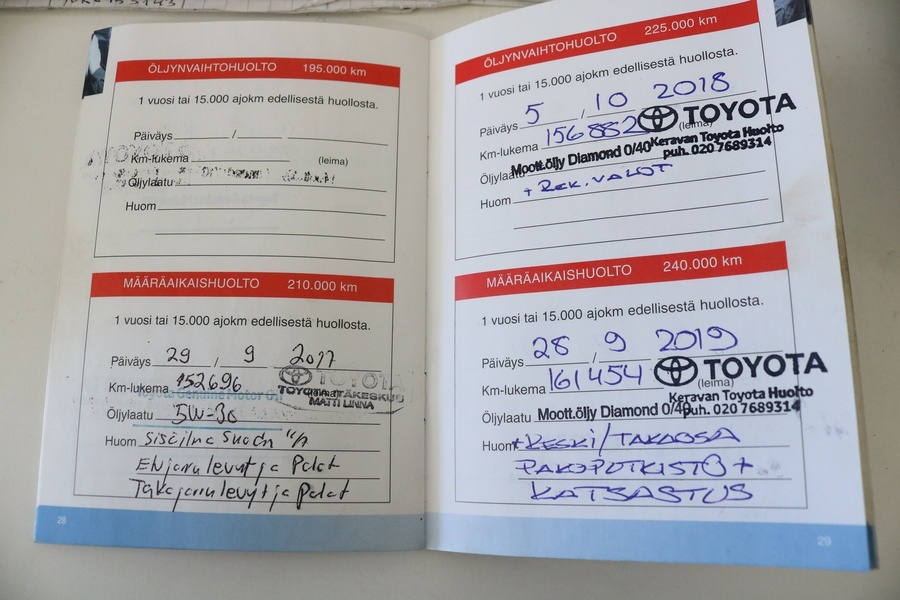 ÖLJYNVAIHTOHUOLTO 195.000 km
1 vuosi tai 15.000 ajokm edellisestä huollosta.
Päiväys /
Km-lukema (leima)
Öljylaatu
Huom
MÄÄRÄAIKAISHUOLTO 210.000 km
1 vuosi tai 15.000 ajokm edellisestä huollosta.
Päiväys 29 / 9 2017
Km-lukema 152696
TOYOTA
MATTI LINNA
Öljylaatu 5W-30
Huom
Etujarrulevyt ja Palat
Takajarrulevyt ja Palat
28
ÖLJYNVAIHTOHUOLTO 225.000 km
1 vuosi tai 15.000 ajokm edellisestä huollosta.
Päiväys 5 / 10 2018
TOYOTA
Km-lukema 156882 (leima)
Keravan Toyota Huolto
puh. 020 7689314
Öljylaatu Moott.öljy Diamond 0/40
Huom + REK. VALOT
MÄÄRÄAIKAISHUOLTO 240.000 km
1 vuosi tai 15.000 ajokm edellisestä huollosta.
Päiväys 28 / 9 2019
TOYOTA
Km-lukema 161454 (leima)
Keravan Toyota Huolto
puh. 020 7689314
Öljylaatu Moott.öljy Diamond 0/40
Huom + KESKI/TAKAOSA
PAKOPUTKISTO +
KATSASTUS
29